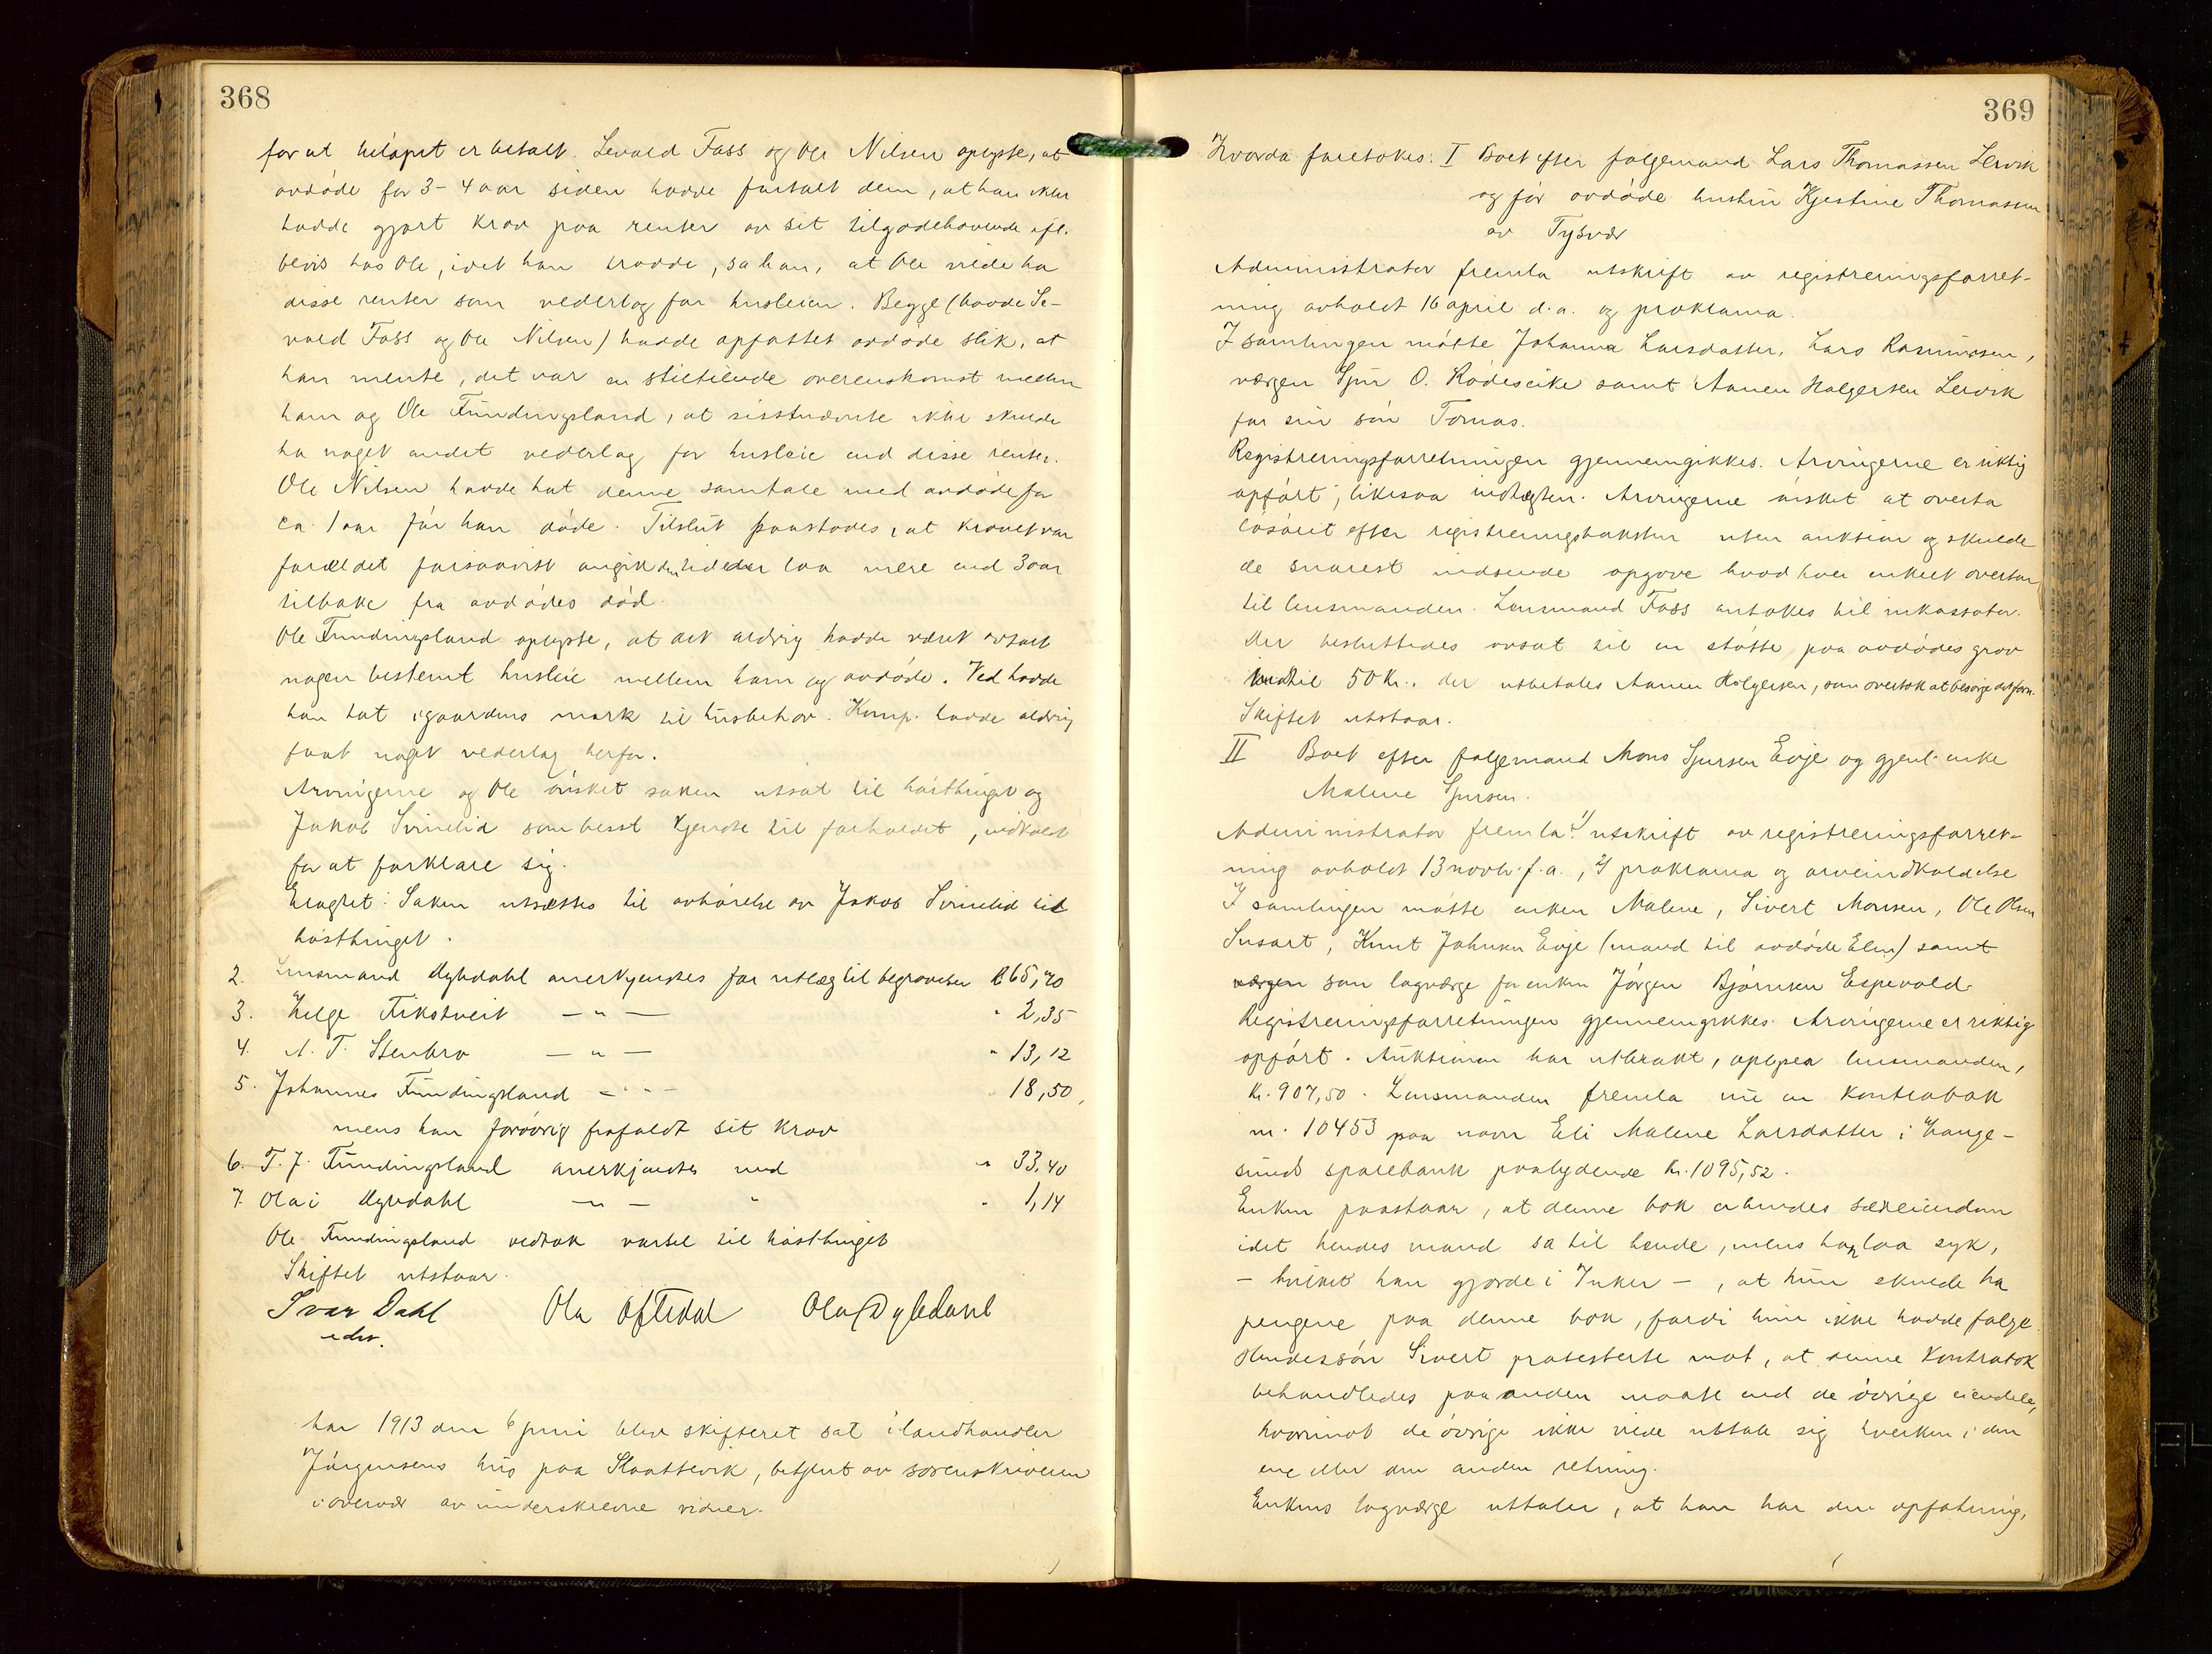 368
for at beløpet er betalt. Sevald Foss og Ole Nilsen oplyste, at
avdøde for 3-4 aar siden hadde fortalt dem, at han ikke
hadde gjort krav paa renter av sit tilgodehavende efl.
bevis hos Ole, idet han trodde, sa han, at Ole vilde ha
disse renter som vederlag for husleien. Begge (baade Se-
vald Foss og Ole Nilsen) hadde opfattet avdøde slik, at
han mente, det var en stiltiende overenskomst mellem
ham og Ole Fundingsland, at sisstnævnte ikke skulde
ha noget andet vederlag for husleie end disse renter.
Ole Nilsen hadde hat denne samtale med avdøde for
ca. 1 aar før han døde. Tilslut paastodes, at kravet var
forældet forsaavidt angik den tid der laa mere end 3 aar
tilbake fra avdødes død.
Ole Fundingsland oplyste, at det aldrig hadde været avtalt
nogen bestemt husleie mellem ham og avdøde. Ved hadde
han hat i gaardens mark til husbehov. Komp. hadde aldrig
faat noget vederlag herfor.
Arvingerne og Ole ønsket saken utsat til høsttinget og
Jakob Svinelid som besst kjendte til forholdet, indkaldt
for at forklare sig.
Eragtet: Saken utsættes til avhørelse av Jakob Svinelid til
høsttinget.
2. Lensmand Dybdahl anerkjendtes for utlæg til begravelsen 165,70
3. Helge Fikstveit — " — " 2,35
4. A. T. Stenbro — " — " 13,12
5. Johannes Fundingsland — " — " 18,50,
mens han forøvrig frafaldt sit krav
6. T. J. Fundingsland anerkjendtes med " 33,40
7. Ola i Dybdahl — " — " " 1,14
Ole Fundingsland vedtok varsel til høsttinget
Skiftet utstaar.
Ivar Dahl Ola Oftedal Ola Dybdahl
edsv.
Aar 1913 den 6 juni blev skifteret sat i landhandler
Jørgensens hus paa Slaattevik, betjent av sorenskriveren
i overvær av underskrevne vidner.
369
Hvorda foretokes: I Boet efter folgemand Lars Thomassen Lervik
og før avdøde hustru Kjestine Thomassen
av Tysvær
Administrator fremla utskrift av registreringsforret-
ning avholdt 16 april d.a. og proklama.
I samlingen møtte Johanna Larsdatter, Lars Rasmussen,
værgen Sjur O. Rødeseike samt Aanen Holgersen Lervik
for sin søn Tomas.
Registreringsforretningen gjennemgikkes. Arvingerne er riktig
opført; likesaa indtægten. Arvingerne ønsket at overta
løsøret efter registreringstaksten uten auktion og skulde
de snarest indsende opgave hvad hver enkelt overtar
til lensmanden. Lensmand Foss antokes til inkassator.
Der besluttedes avsat til en støtte paa avdødes grav
indtil 50 Kr. der utbetales Aanen Holgersen, som overtok at besørge det forn.
Skiftet utstaar.
II Boet efter folgemand Mons Sjursen Evje og gjenl. enke
Malene Sjursen.
Administrator fremla 1) utskrift av registreringsforret-
ning avholdt 13 novbr. f.a., 2) proklama og arveindkaldelse
I samlingen møtte enken Malene, Sivert Monsen, Ole Olsen
Susort, Knut Johnsen Evje (mand til avdøde Elen) samt
værgen som lagværge for enken Jørgen Bjørnsen Espevold.
Registreringsforretningen gjennemgikkes. Arvingerne er riktig
opført. Auktionen har utbrakt, oplyser lensmanden,
Kr. 907,50. Lensmanden fremla nu en kontrabok
nr. 10453 paa navn Eli Malene Larsdatter i Hauge-
sunds sparebank paalydende Kr. 1095,52.
Enken paastaar, at denne bok er hendes særeiendom
idet hendes mand sa til hende, mens han laa syk,
— hvilket han gjorde i 7 uker —, at hun skulde ha
pengene paa denne bok, fordi hun ikke hadde folge.
Hendes søn Sivert protesterte mot, at denne kontrabok
behandledes paa anden maate end de øvrige eiendele,
hvorimot de øvrige ikke vilde uttale sig hverken i den
ene eller den anden retning.
Enkens lagværge uttaler, at han har den opfatning,